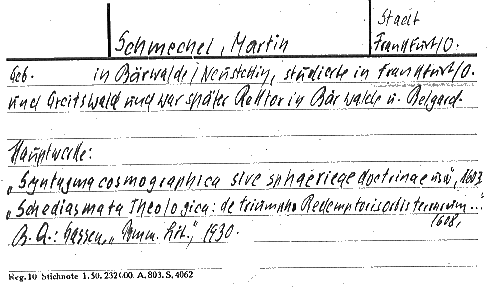 Stadt
Schmechel, Martin Frankfurt/O.
Geb. in Bärwalde/Neustettin, studierte in Frankfurt/O.
und Greifswald und war später Rektor in Bärwalde u. Belgard.
Hauptwerke:
„Syntagma cosmographica sive sphaericae doctrinae 1603,
„Schediasmata Theologica: de triumpho Redemptoris orbis terrarum..."
1608,
B. Q.: „Pomm. Lit.", 1930.
Reg. 10 Stichnote 1. 50. 232000. A. 803. S. 4062